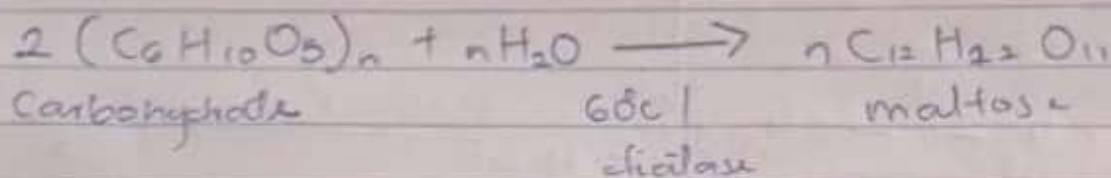 2 (C₆H₁₀O₅)ₙ + nH₂O ⟶ n C₁₂ H₂₂ O₁₁
Carbohydrate 60°C | maltose